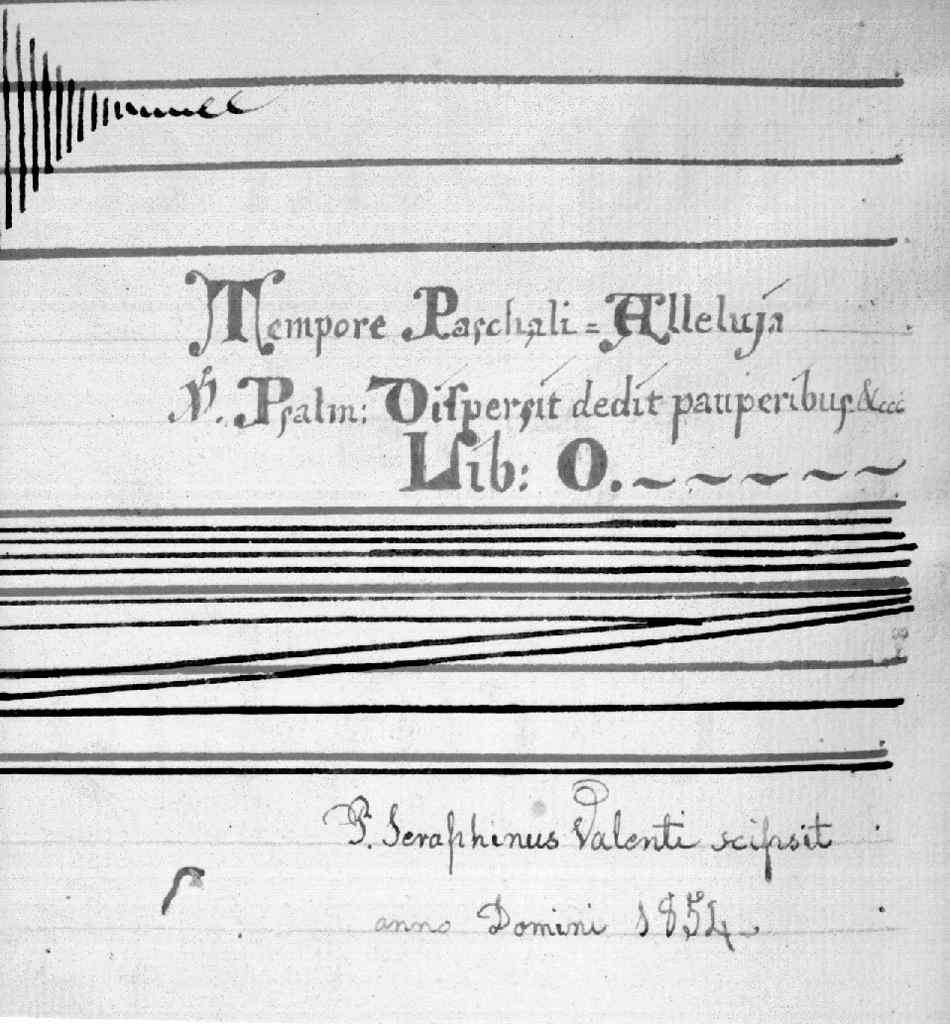 Tempore Paschali = Alleluja
℣. Psalm: Dispersit dedit pauperibus. &ccc
Lib: O.
P. Seraphinus Valenti scipsit
anno Domini 1854